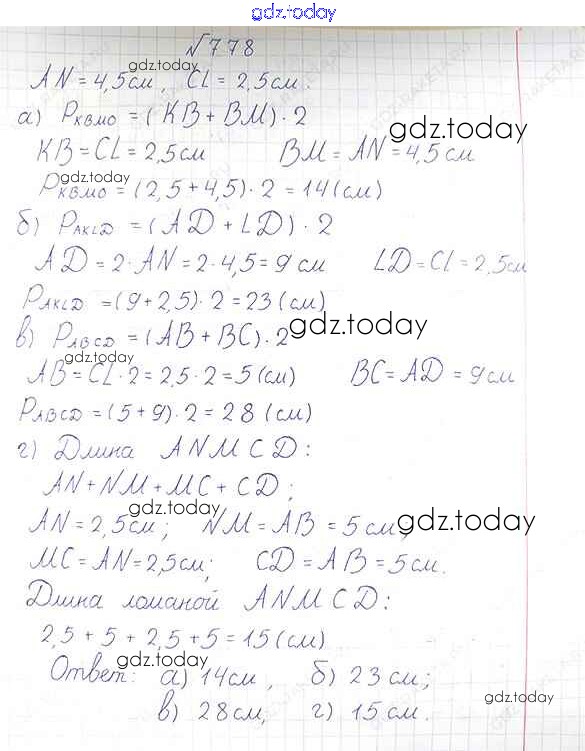 gdz.today
№778
gdz.today
AN = 4,5 см, CL = 2,5 см.
а) PКВМО = (КВ + ВМ) · 2
gdz.today
КВ = CL = 2,5 см   ВМ = AN = 4,5 см
gdz.today
PКВМО = (2,5 + 4,5) · 2 = 14 (см)
б) PAKLD = (AD + LD) · 2
AD = 2 · AN = 2 · 4,5 = 9 см   LD = CL = 2,5 см
PAKLD = (9 + 2,5) · 2 = 23 (см)
в) PABCD = (AB + BC) · 2
gdz.today
gdz.today
AB = CL · 2 = 2,5 · 2 = 5 (см)   BC = AD = 9 см
PABCD = (5 + 9) · 2 = 28 (см)
г) Длина ANMCD:
AN + NM + MC + CD;
AN = 2,5 см; NM = AB = 5 см,
gdz.today
MC = AN = 2,5 см; CD = AB = 5 см.
Длина ломаной ANMCD:
2,5 + 5 + 2,5 + 5 = 15 (см)
gdz.today
Ответ: а) 14 см, б) 23 см;
gdz.today
в) 28 см, г) 15 см.
gdz.today